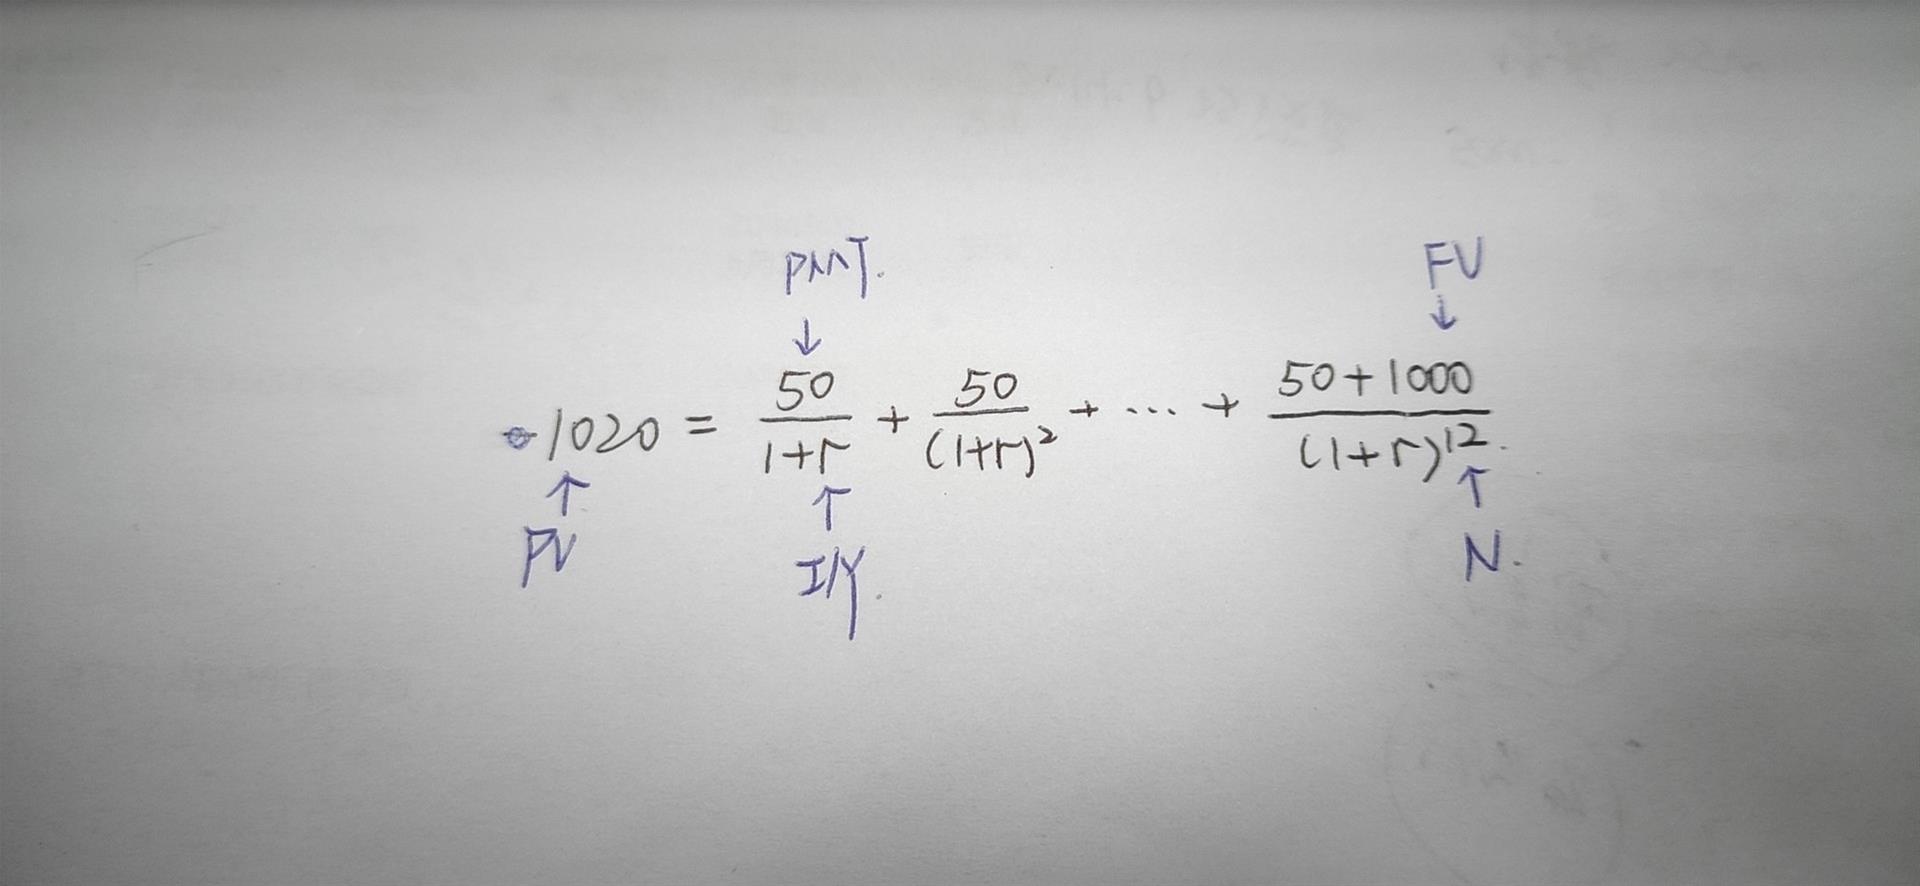 PMT. FV
↓ ↓
1020 = 50/(1+r) + 50/(1+r)² + ... + (50+1000)/(1+r)¹².
↑ ↑ ↑
PV I/Y. N.